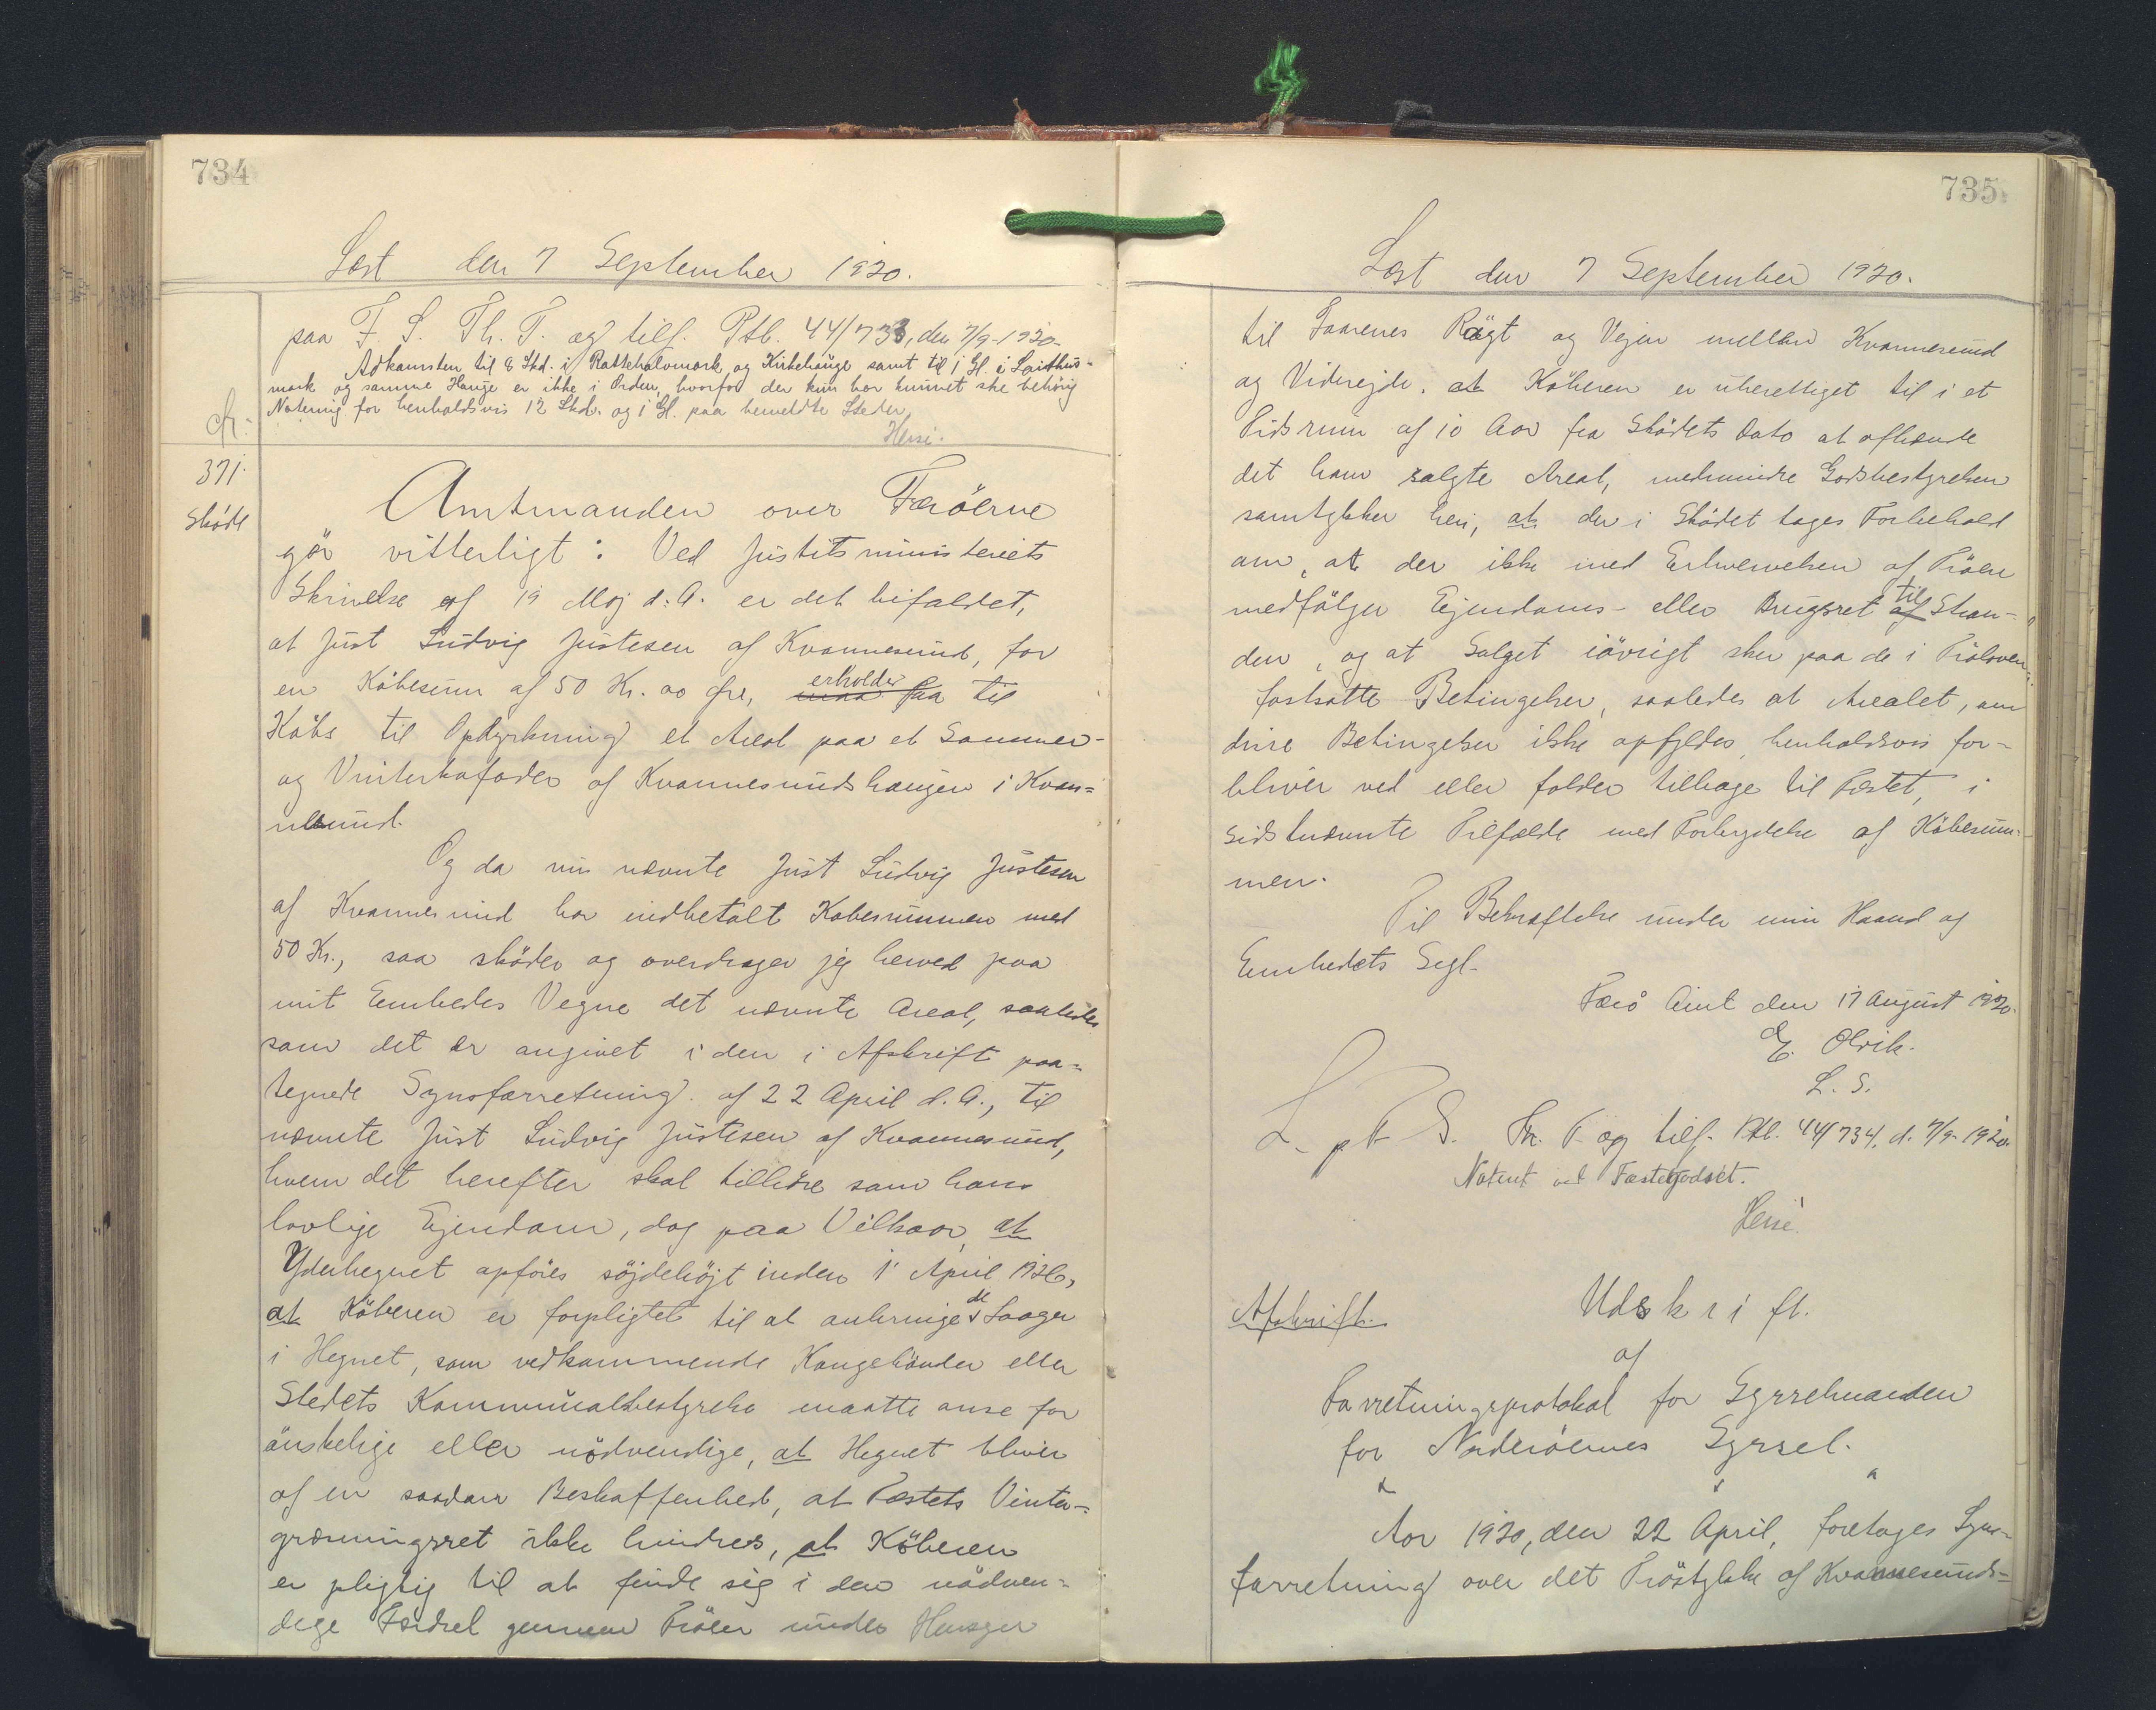 734
Læst den 7 September 1920.
paa F. S. Th. T. og tilf. Ptb. 44/733, den 7/9-1920.
Adkomsten til 8 Skd. i Rattehalvmark og Kirkehauge samt til 1 Gl. i
mark og samme Hauge er ikke i Orden, hvorfor der kun har kunnet ske behörig
Notering for henholdsvis 12 Skd. og 1 Gl. paa hermeldte Steder.
cfr.
371.
Sködе
Amtmanden over Færöerne
gör vitterligt: Ved Justitsministeriets
Skrivelse af 19 Maj d. A. er det bifaldet,
at Just Ludvig Justesen af Kvannesund, for
en Köbesum af 50 Kr. 00 Öre, maa faa erholder til
Köbs til Opdyrkning et Areal paa et Sommer-
og Vinterhafader af Kvannesundshaugen i Kvan=
nesund.
Og da nu nævnte Just Ludvig Justesen
af Kvannesund har indbetalt Købesummen med
50 Kr., saa sköder og overdrager jeg herved paa
mit Embedes Vegne det nævnte Areal, saaledes
som det er angivet i den i Afskrift paa=
tegnede Synsforretning af 22 April d. A., til
nævnte Just Ludvig Justesen af Kvannesund,
hvem det herefter skal tilhöre som hans
lovlige Ejendom, dog paa Vilkaar, at
Yderhegnet opföres söjdehöjt inden 1' April 1926,
at Köberen er forpligtet til at anbringe de Laager
i Hegnet, som vedkommende Kongebönder eller
Stedets Kommunalbestyrelse maatte anse for
önskelige eller nödvendige, at Hegnet bliver
af en saadan Beskaffenhed, at Fæstets Vinter-
græsningsret ikke hindres, at Köberen
er pligtig til at finde sig i den nödven=
dige Færdsel gennem Tröen under Hensyn
735
Læst den 7 September 1920.
til Faarenes Rögt og Vejen mellem Kvannesund
og Viderejde. at Köberen er uberettiget til i et
Tidsrum af 10 Aar fra Skødets Dato at afhænde
det ham solgte Areal, medmindre Godsbestyrelsen
samtykker heri, at der i Skødet tages Forbehold
om, at der ikke med Erhvervelsen af Tröen
medfölger Ejendoms- eller Brugsret af til Stran-
den, og at Salget iövrigt sker paa de i Tröloven
fastsatte Betingelser, saaledes at Arealet, om
disse Betingelser ikke opfyldes, henholdsvis for-
bliver ved eller falder tilbage til Fæstet, i
sidstnævnte Tilfælde med Fortrydelse af Köbesum-
men.
Til Bekræftelse under min Haand og
Embedets Segl.
Færö Amt den 17 August 1920.
E. Olrik.
L. S.
L. pt S. Th. T. og tilf. Ptb. 44/734. d. 7/9-1920.
Noteret ved Fæstegodset.
Afskrift.
Udskrift.
af
Forretningsprotokol for Sysselmanden
for Norderöernes Syssel.
Aar 1920, den 22 April, foretages Syns-
forretning over det Tröstykke af Kvannesunds-